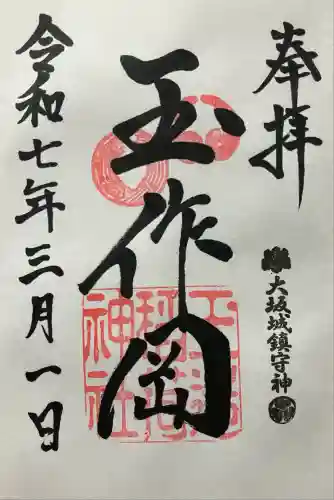 奉拝
大坂城鎮守神
玉作岡
玉造
稲荷
神社
令和七年三月一日